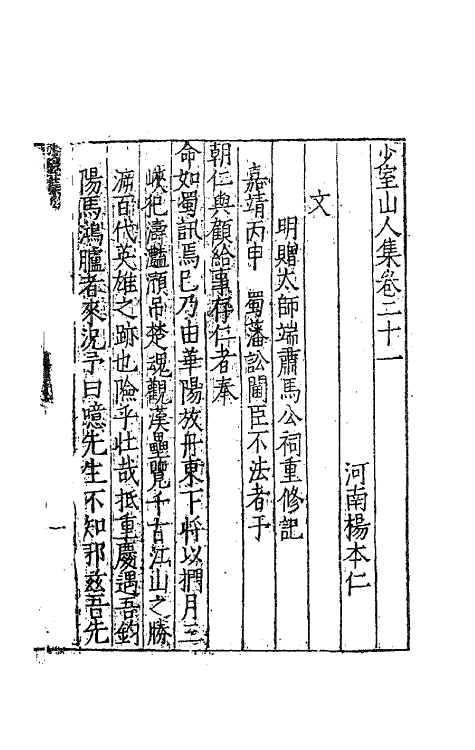 少室山人集卷二十一
河南楊本仁
文
明贈太師端肅馬公祠重修記
嘉靖丙申 蜀藩訟閫臣不法者于
朝仁與顧給事存仁者奉
命如蜀訊焉巳乃由華陽放舟東下將以捫月三
峽犯濤灩澦吊楚魂觀漢壘覽千古江山之勝
游百代英雄之跡也險乎壯哉抵重慶遇吾鈞
陽馬鴻臚者來況予曰噫先生不知邪兹吾先
一